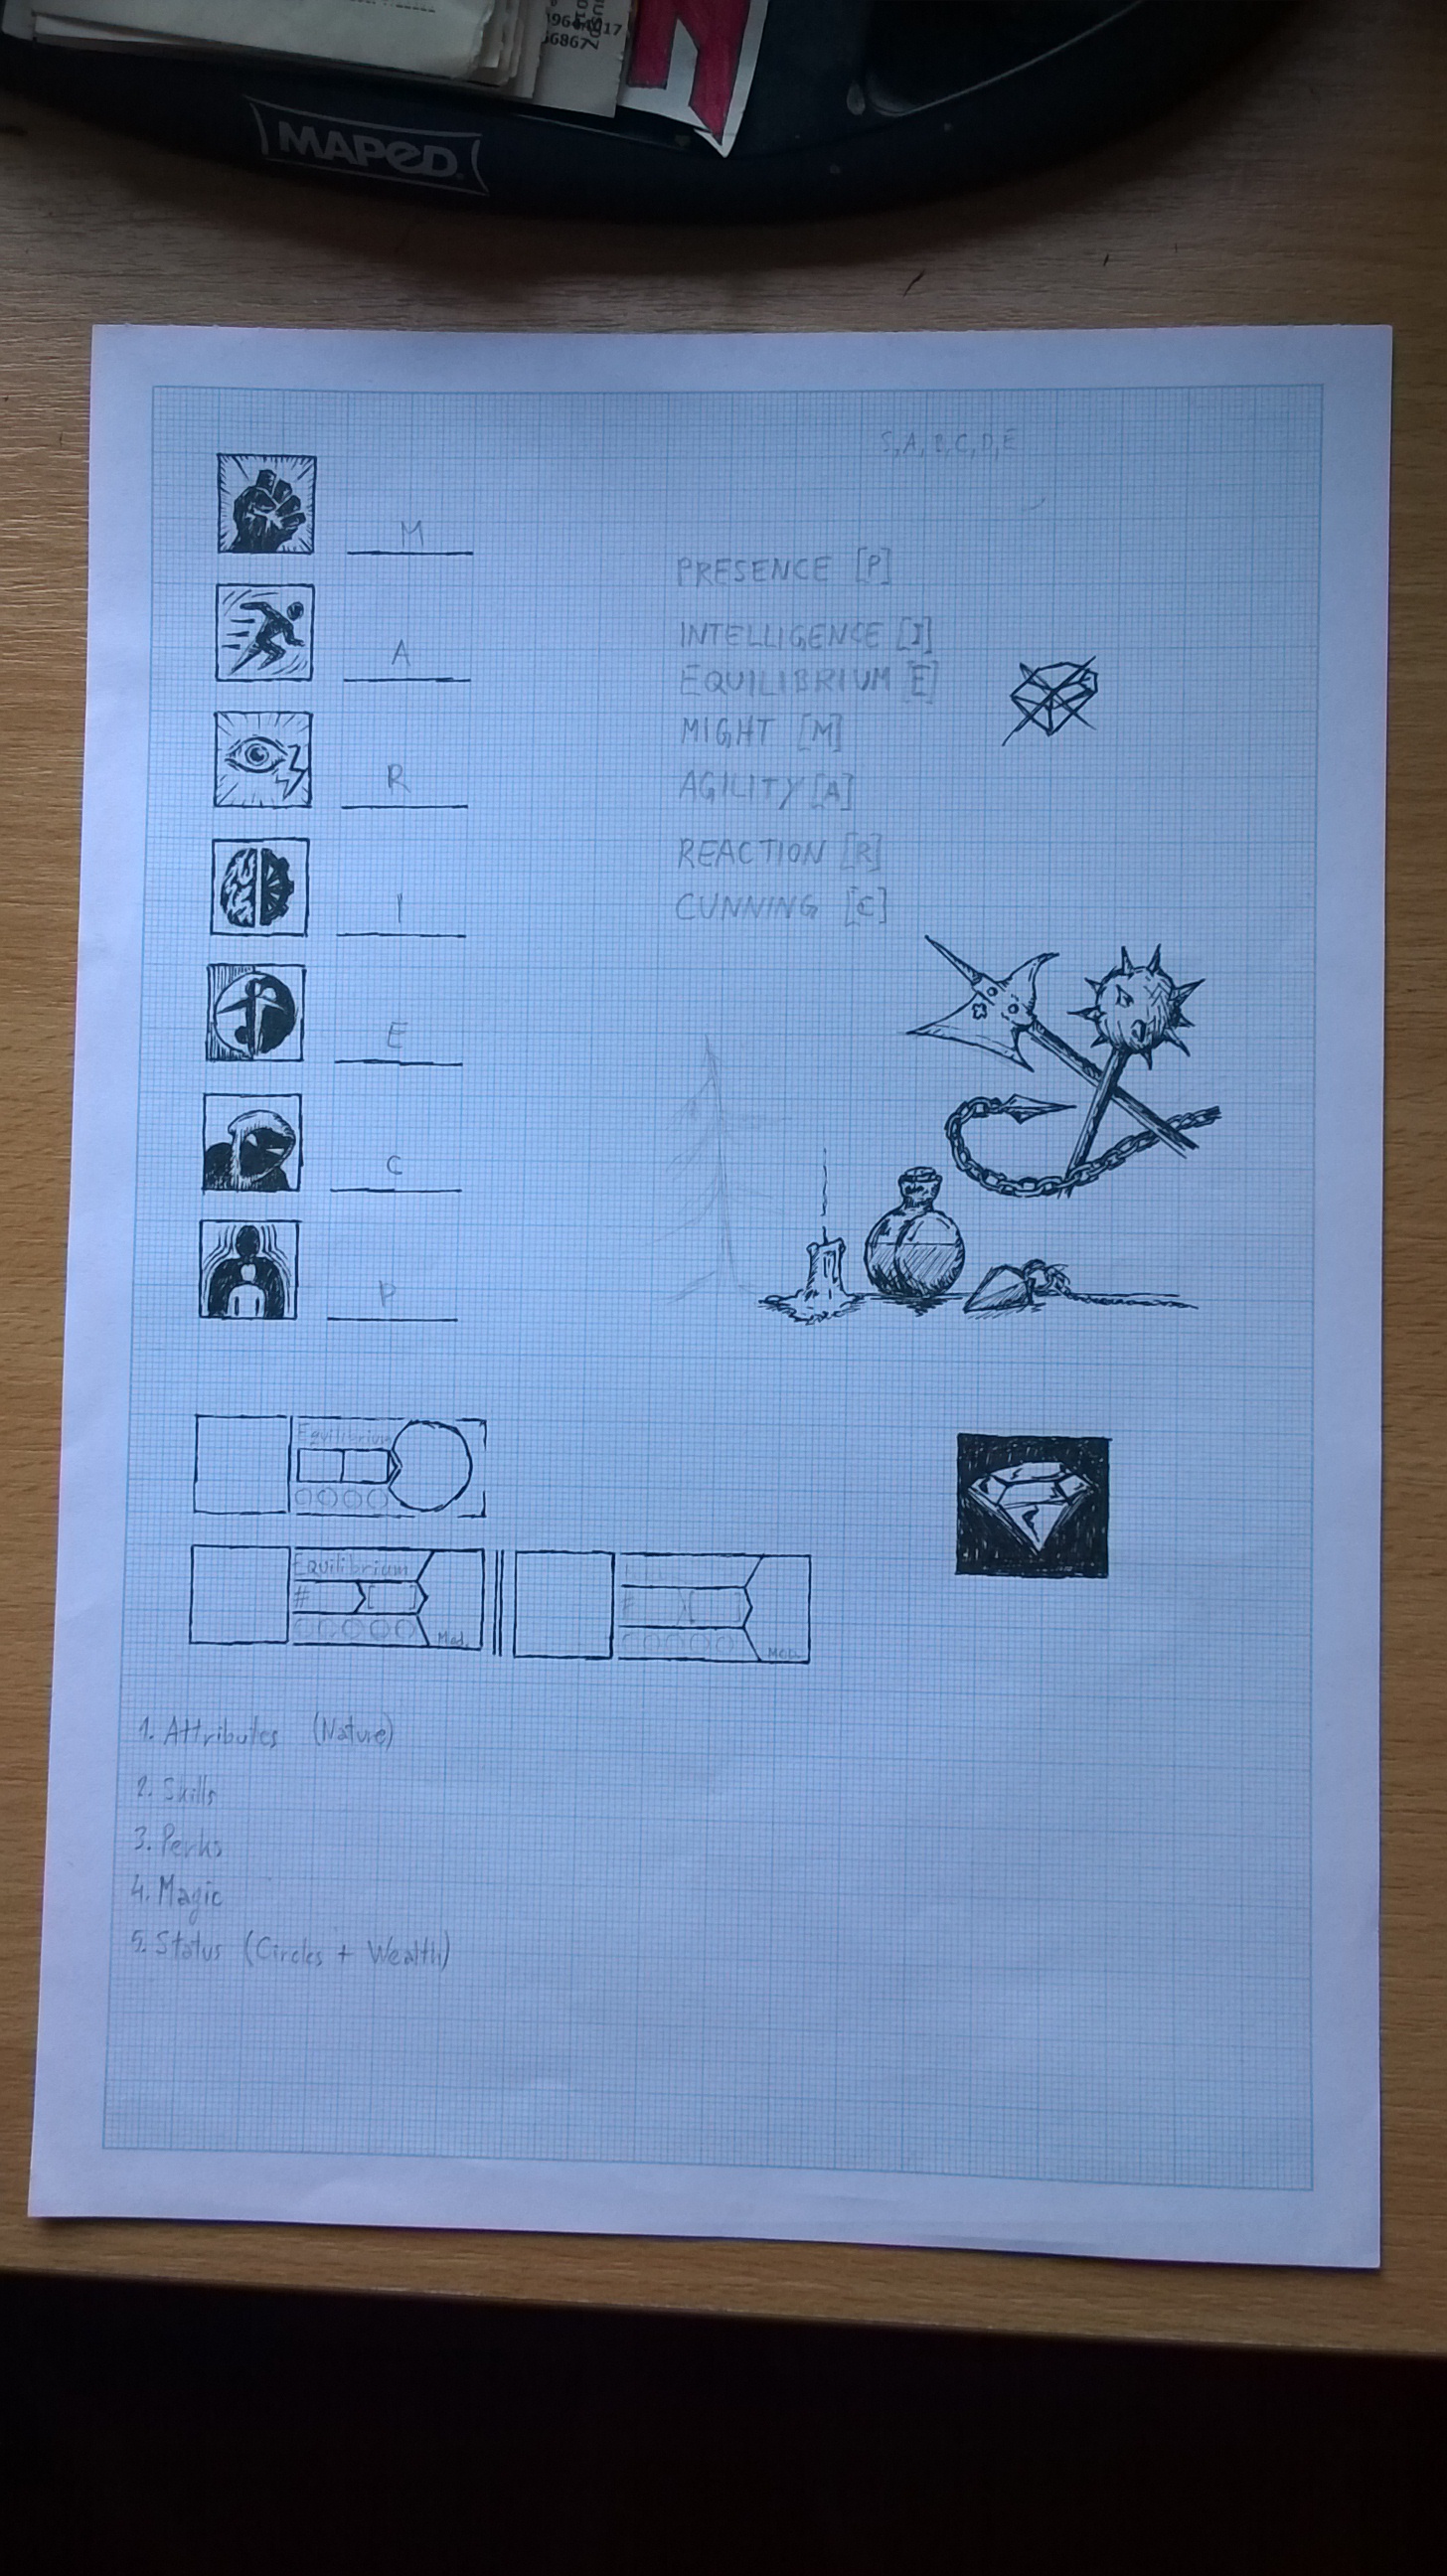 MAPED
S,A,B,C,D,E
M
PRESENCE [P]
INTELLIGENCE [I]
A
EQUILIBRIUM [E]
MIGHT [M]
R
AGILITY [A]
REACTION [R]
I
CUNNING [C]
E
C
P
Equilibrium
Equilibrium
#
#
Mod.
Mod.
1. Attributes (Nature)
2. Skills
3. Perks
4. Magic
5. Status (Circles + Wealth)